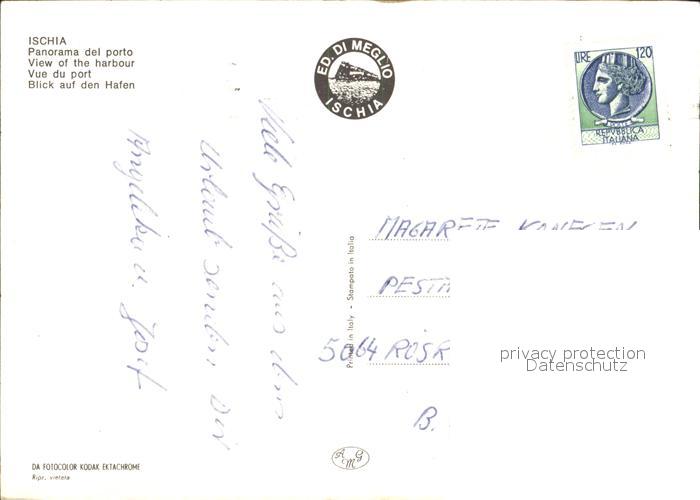 ISCHIA
Panorama del porto
View of the harbour
Vue du port
Blick auf den Hafen
ED. DI MEGLIO
ISCHIA
LIRE 120
POSTE
REPVBBLICA
ITALIANA
Viele Grüße aus dem
Urlaub senden Dir
Angelika u. Josef
Printed in Italy - Stampato in Italia
MAGARETE
PESTA
5064 RÖSR
B.
privacy protection
Datenschutz
DA FOTOCOLOR KODAK EKTACHROME
Ripr. vietata
A G M